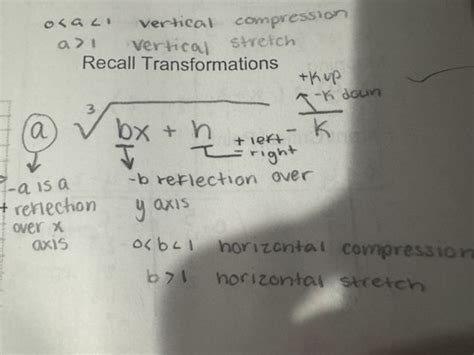 0<a<1 vertical compression
a>1 vertical stretch
Recall Transformations
+K up
-K down
a ∛ bx + h - K
+ left
= right
-a is a
reflection
over x
axis
-b reflection over
y axis
0<b<1 horizontal compression
b>1 horizontal stretch